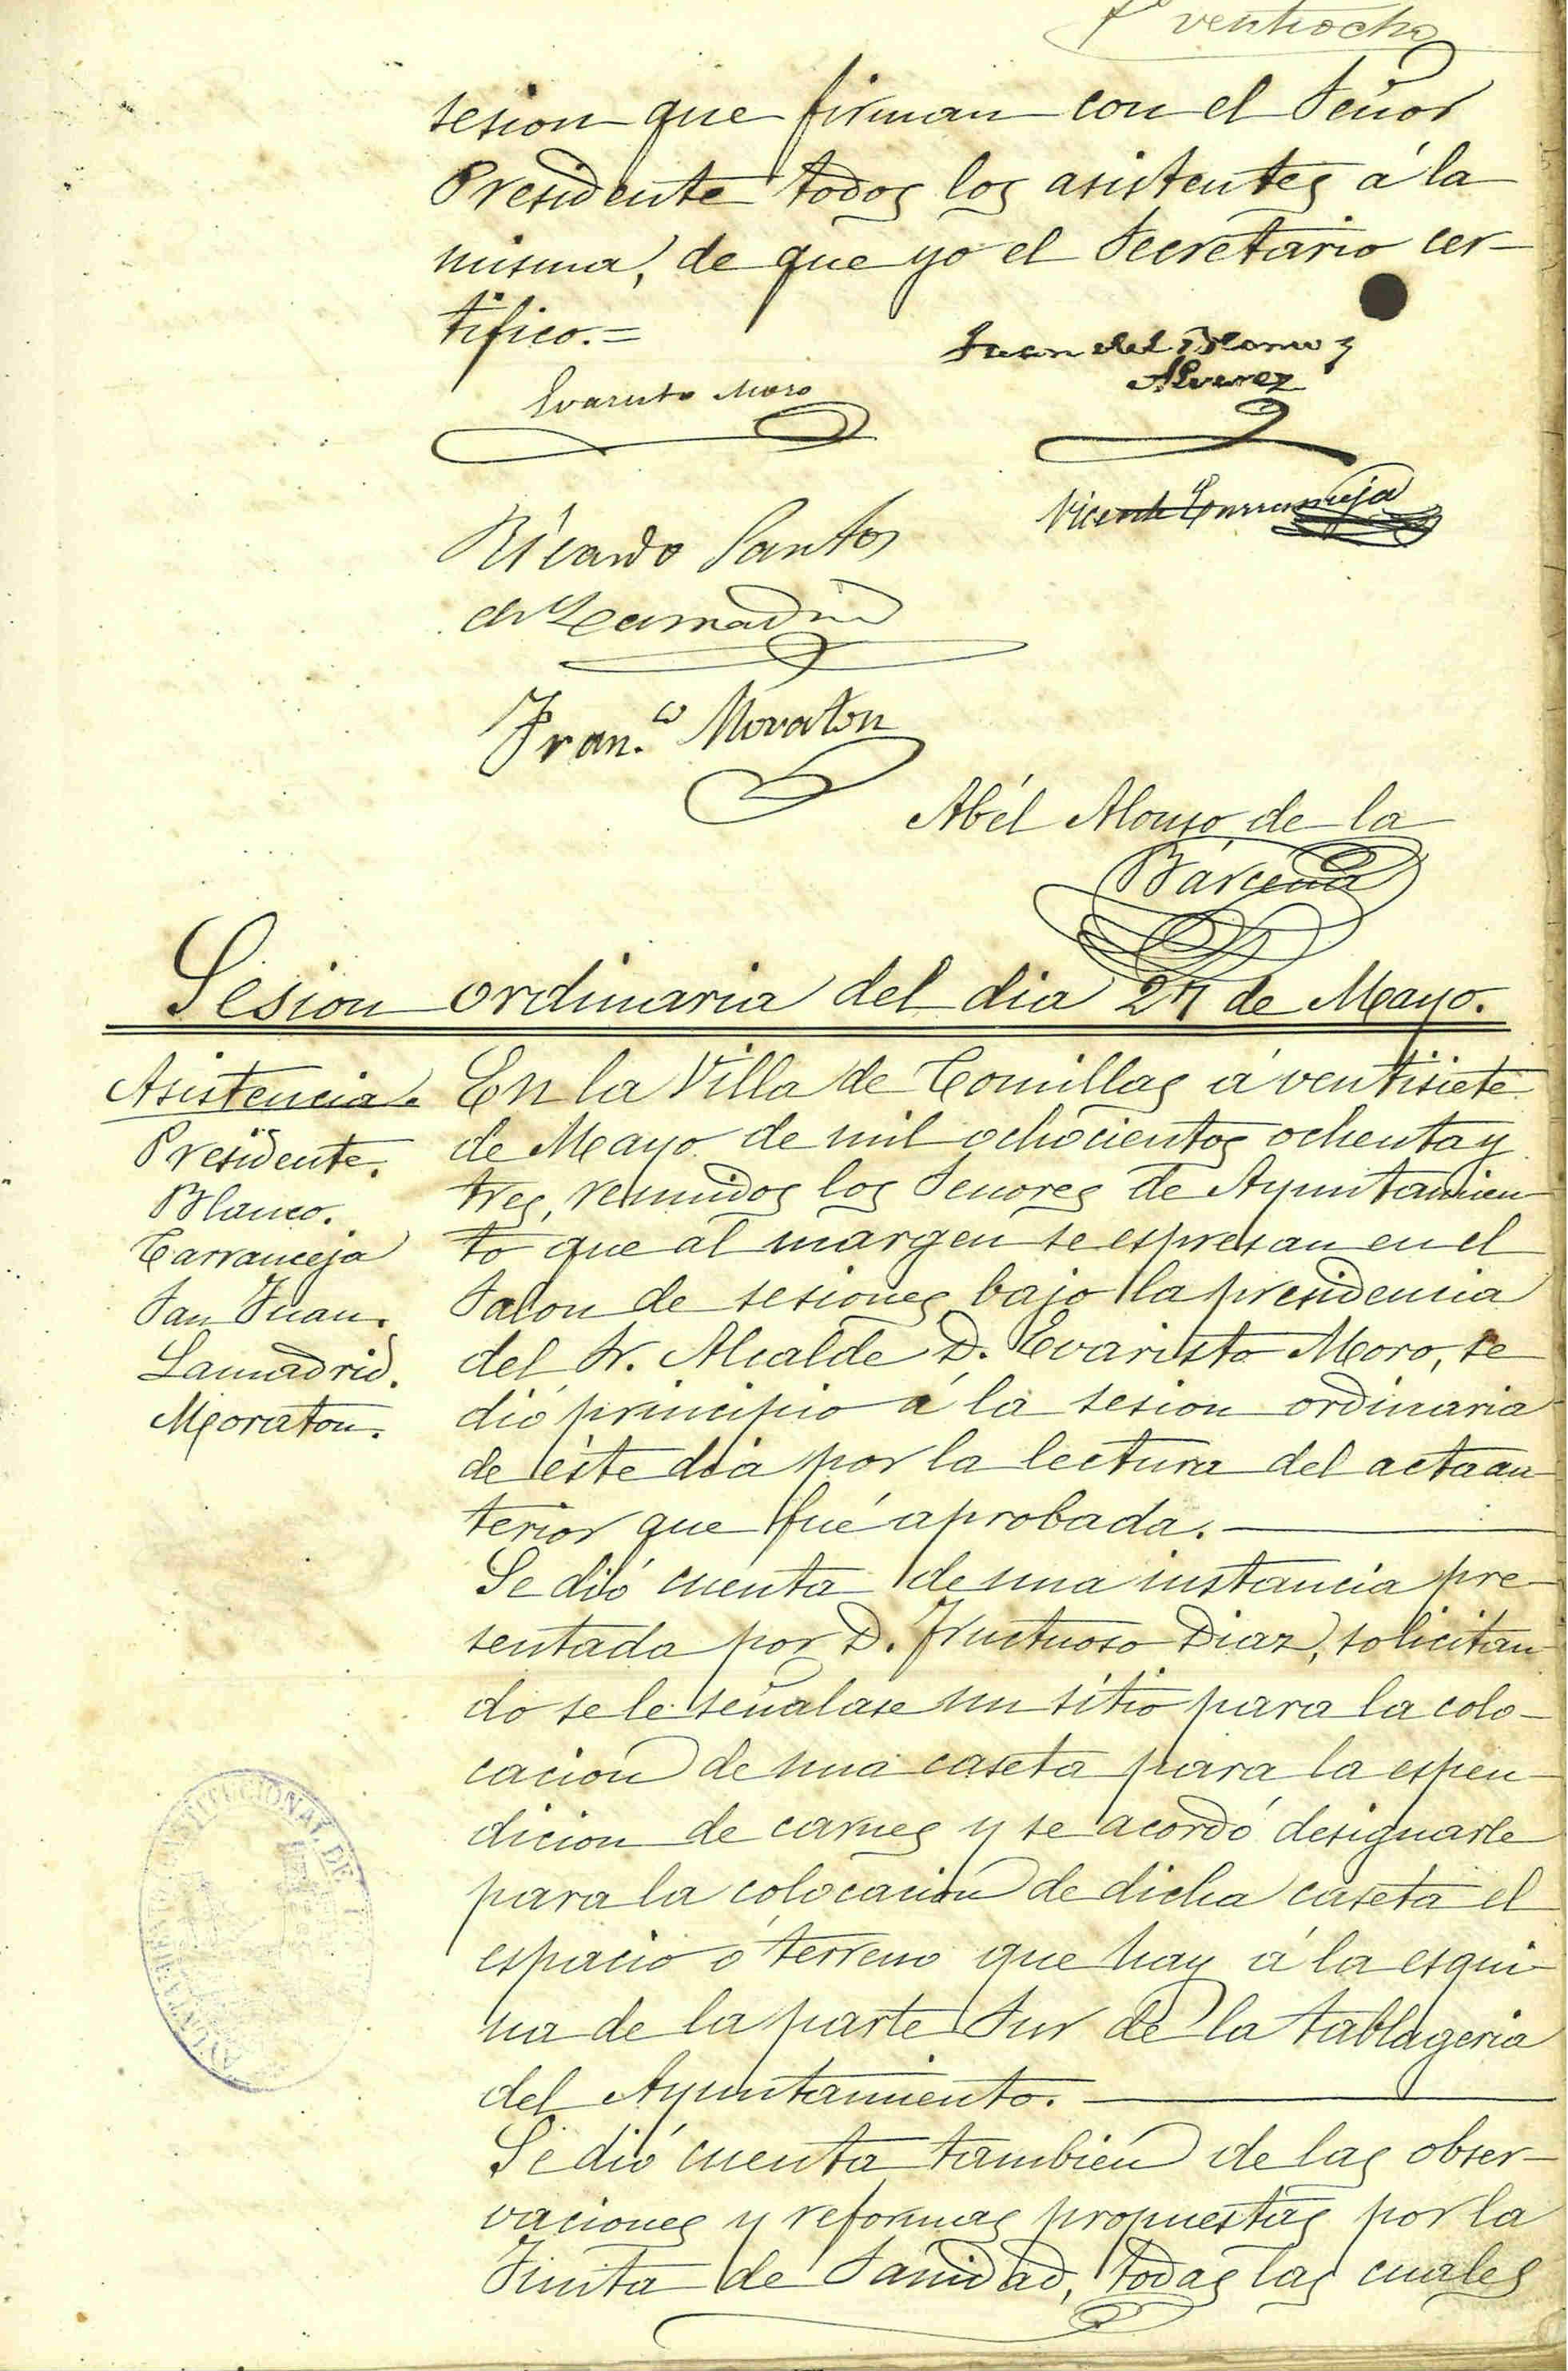 fº ventiocho
sesion que firman con el Señor
Presidente todos los asistentes á la
misma, de que yo el Secretario cer-
tifico.=
Juan del Blanco y
Alvarez
Evaristo Moro
Vicente Carranceja
Ricardo Santos
de Lamadrid
Fran.co Moraton
Abél Alonso de la
Bárcena
Sesion ordinaria del dia 27 de Mayo.
Asistencia.
Presidente.
Blanco.
Carranceja
San Juan.
Lamadrid.
Moraton.
En la Villa de Comillas á ventisiete
de Mayo de mil ochocientos ochenta y
tres, reunidos los Señores de Ayuntamien-
to que al margen se espresan en el
Salon de sesiones bajo la presidencia
del Sr. Alcalde D. Evaristo Moro, se
dió principio á la sesion ordinaria
de éste dia por la lectura del acta an-
terior que fué aprobada.
Se dió cuenta de una instancia pre-
sentada por D. Fructuoso Diaz, solicitan-
do se le señalase un sitio para la colo-
cacion de una caseta para la espen-
dicion de carnes y se acordó designarle
para la colocacion de dicha caseta el
espacio ó terreno que hay á la esqui-
na de la parte Sur de la tablageria
del Ayuntamiento.
Se dió cuenta tambien de las obser-
vaciones y reformas propuestas por la
Junta de Sanidad, todas las cuales
AYUNTAMIENTO CONSTITUCIONAL DE